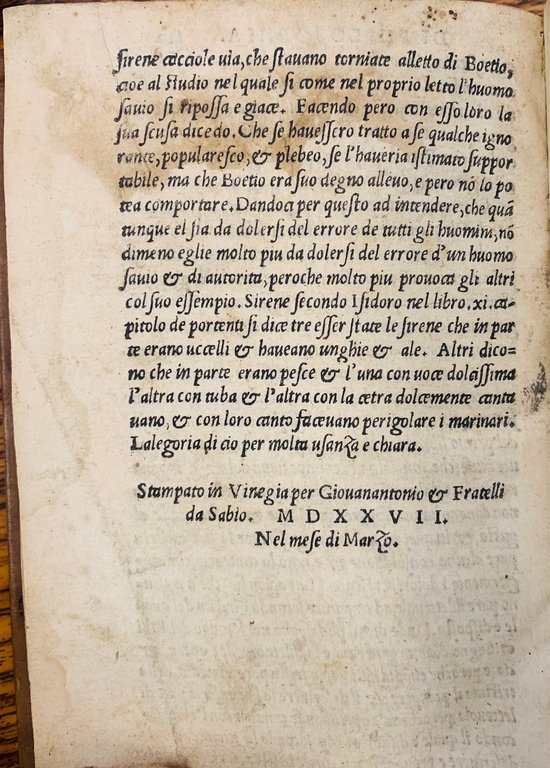 ſirene cacciole uia, che ſtavano torniate alletto di Boetio,
cioe al ſtudio nel quale ſi come nel proprio letto l'huomo
ſauio ſi ripoſſa e giace. Facendo pero con eſſo loro la
ſua scuſa dicẽdo. Che ſe haueſſero tratto a ſe qualche igno
rante, populareſco, & plebeo, ſe l'haueria iſtimato ſuppor
tabile, ma che Boetio era ſuo degno alleuo, e pero nõ lo po
tea comportare. Dandoci per queſto ad intendere, che quã
tunque el ſia da dolerſi del errore de tutti gli huomini, nõ
dimeno eglie molto piu da dolerſi del errore d'un huomo
ſauio & di autorita, peroche molto piu prouoca gli altri
col ſuo eſſempio. Sirene ſecondo Iſidoro nel libro. xi. ca-
pitolo de portenti ſi dice tre eſſer ſtate le ſirene che in par
te erano uccelli & haueano unghie & ale. Altri dico=
no che in parte erano peſce & l'una con uoce dolciſſima
l'altra con tuba & l'altra con la cetra dolcemente canta
uano, & con loro canto faceuano perigolare i marinari.
Lalegoria di cio per molta uſanza e chiara.
Stampato in Vinegia per Giouanantonio & Fratelli
da Sabio. M D X X V I I.
Nel meſe di Marzo.